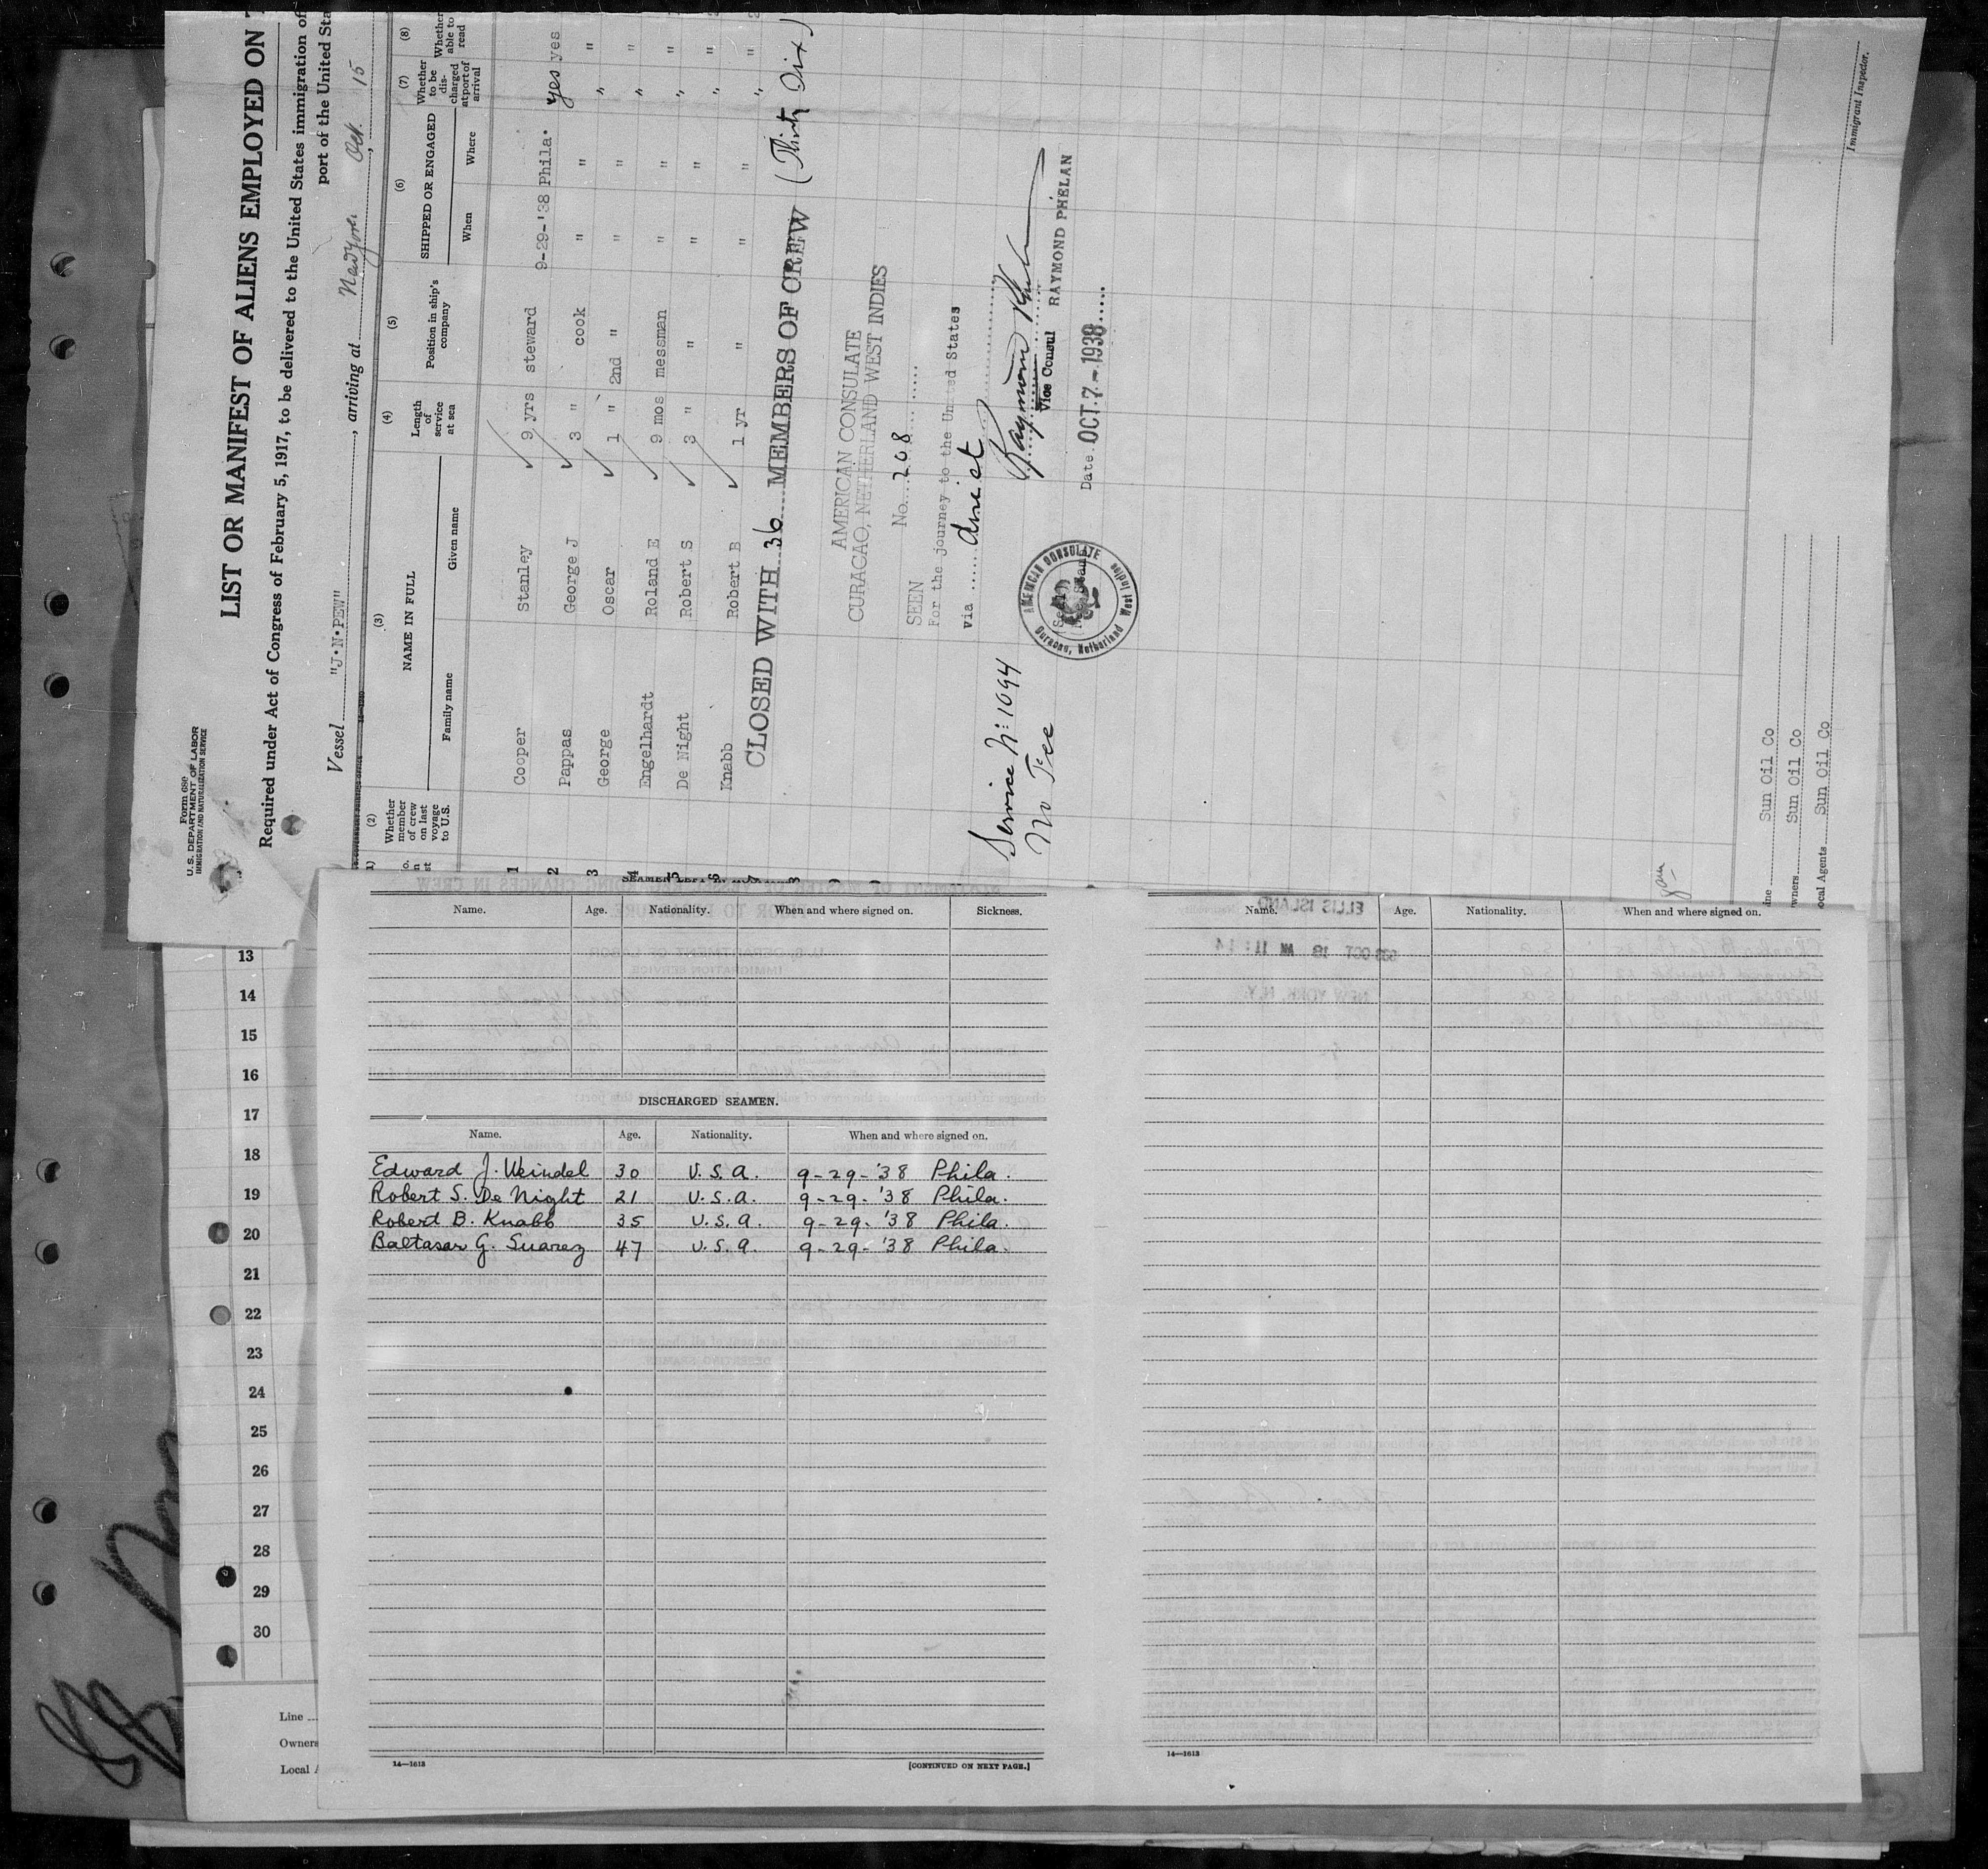 Form 689
U.S. DEPARTMENT OF LABOR
IMMIGRATION AND NATURALIZATION SERVICE
LIST OR MANIFEST OF ALIENS EMPLOYED ON
Required under Act of Congress of February 5, 1917, to be delivered to the United States immigration of
port of the United Sta
Vessel "J.N.PEW", arriving at New York Oct. 15,
(2) (3) (4) (5) (6) (7) (8)
Whether member of crew on last voyage to U.S.
NAME IN FULL
Family name Given name
Length of service at sea
Position in ship's company
SHIPPED OR ENGAGED
When Where
Whether to be discharged at port of arrival
Whether able to read
1 Cooper Stanley 9 yrs steward 9-29-'38 Phila. yes yes
2 Pappas George J 3 " cook " " " "
3 George Oscar 1 " 2nd " " " " "
4 Engelhardt Roland E 9 mos messman " " " "
5 De Night Robert S 3 " " " " " "
6 Knabb Robert B 1 yr " " " " "
7
8
CLOSED WITH 36 MEMBERS OF CREW (Thirty Six)
AMERICAN CONSULATE
CURACAO, NETHERLAND WEST INDIES
No. 208
SEEN
For the journey to the United States
via direct
Raymond Phelan
Vice Consul RAYMOND PHELAN
Date. OCT. 7 - 1938
AMERICAN CONSULATE
Curacao, Netherland West Indies
Service No: 1094
No Fee
Immigrant Inspector.
Line Sun Oil Co
Owners Sun Oil Co
Local Agents Sun Oil Co
Name. Age. Nationality. When and where signed on. Sickness.
DISCHARGED SEAMEN.
Name. Age. Nationality. When and where signed on.
Edward J. Weindel 30 U.S.A. 9-29-'38 Phila.
Robert S. De Night 21 U.S.A. 9-29-'38 Phila.
Robert B. Knabb 35 U.S.A. 9-29-'38 Phila.
Baltasar G. Suarez 47 U.S.A. 9-29-'38 Phila.
14—1613
[CONTINUED ON NEXT PAGE.]
Name. Age. Nationality. When and where signed on.
14—1613
13
14
15
16
17
18
19
20
21
22
23
24
25
26
27
28
29
30
Line
Owners
Local A